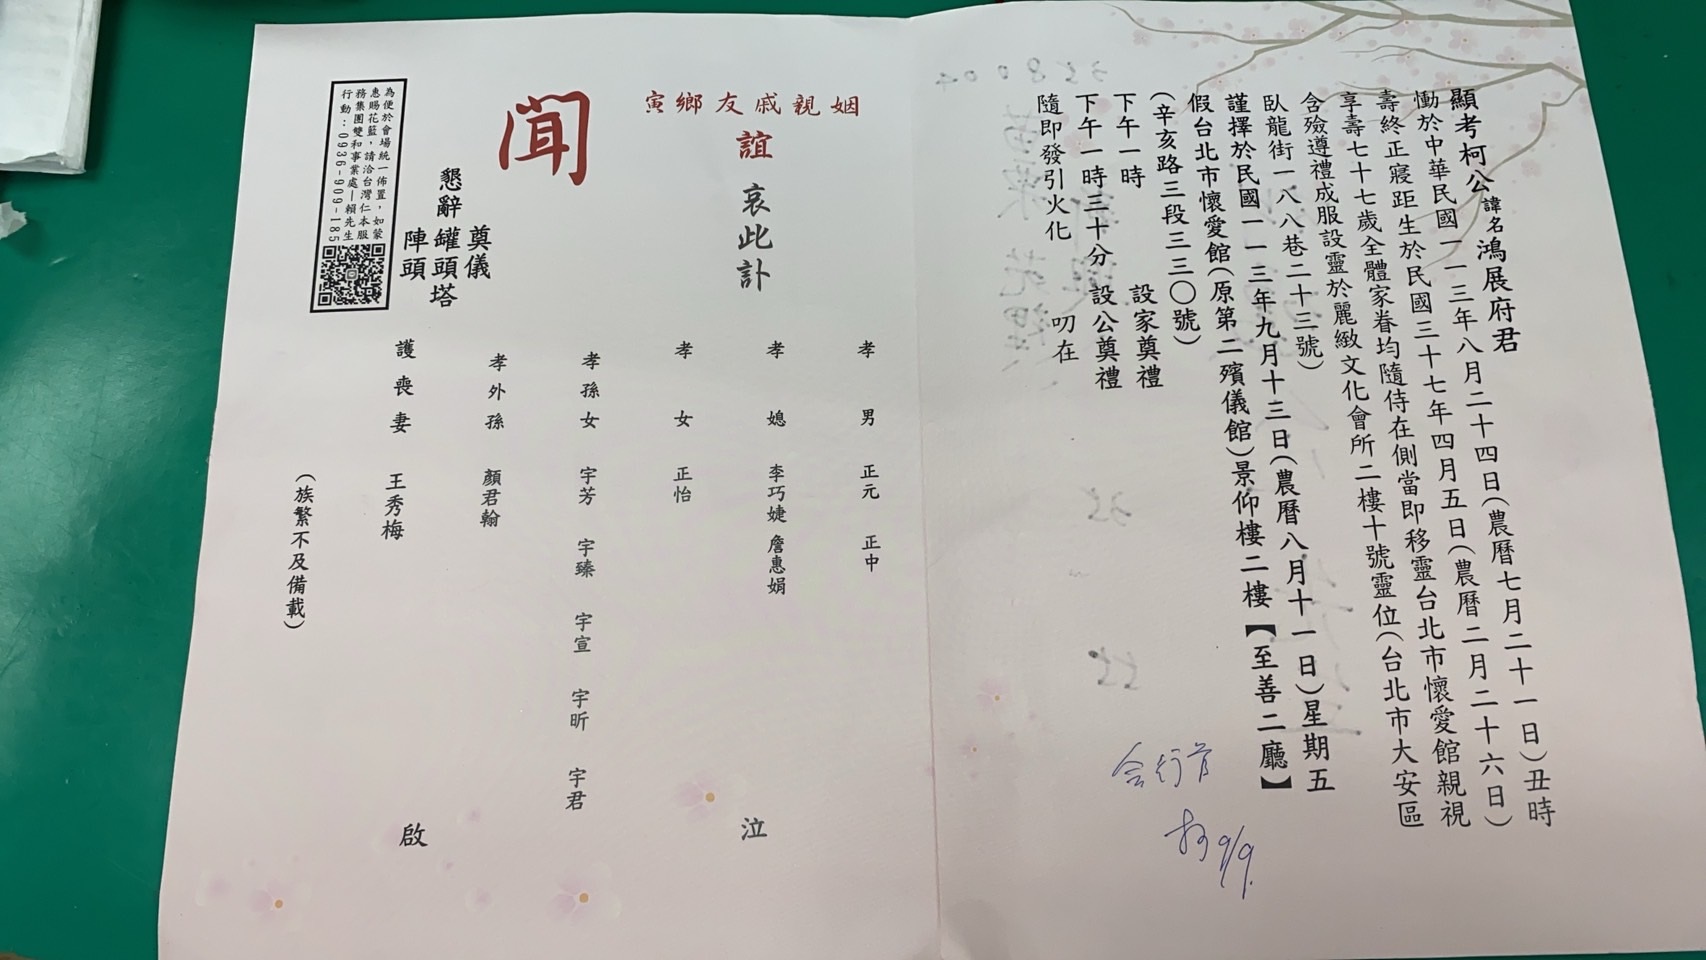 顯考柯公諱名鴻展府君
慟於中華民國一一三年八月二十四日(農曆七月二十一日)丑時
壽終正寢距生於民國三十七年四月五日(農曆二月二十六日)
享壽七十七歲全體家眷均隨侍在側當即移靈台北市懷愛館親視
含殮遵禮成服設靈於麗緻文化會所二樓十號靈位(台北市大安區
臥龍街一八八巷二十三號)
謹擇於民國一一三年九月十三日(農曆八月十一日)星期五
假台北市懷愛館(原第二殯儀館)景仰樓二樓【至善二廳】
(辛亥路三段三三〇號)
下午一時 設家奠禮
下午一時三十分 設公奠禮
隨即發引火化 叨在
姻親戚友鄉寅
誼 哀此訃
聞
孝男 正元 正中
孝媳 李巧婕 詹惠娟
孝女 正怡
孝孫女 宇芳 宇臻 宇宣 宇昕 宇君
孝外孫 顏君翰
護喪妻 王秀梅
(族繁不及備載)
泣
啟
懇辭
奠儀
罐頭塔
陣頭
為便於會場統一佈置，如蒙
惠賜花籃，請洽台灣仁本服
務集團雙和事業處－賴先生
行動：0936-909-185
會行首
9/9